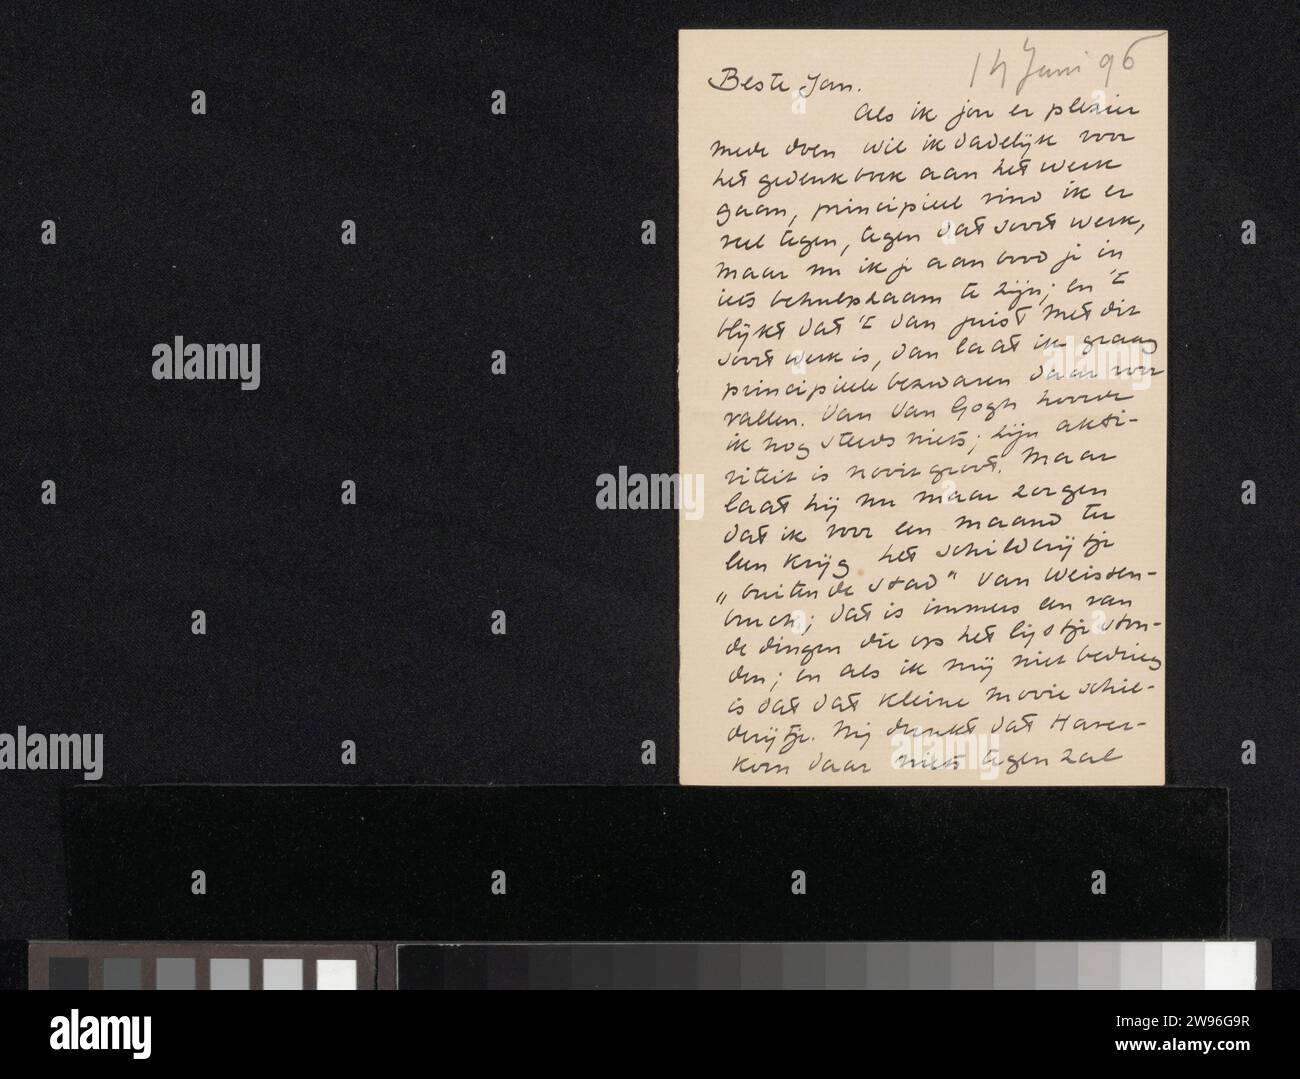 14 Juni 96
Beste Jan.
Als ik jou er plezier
mede doen wil ik dadelijk voor
het gedenkboek aan het werk
gaan, principieel vind ik er
veel tegen, tegen dat soort werk,
maar nu ik je aanbood je in
iets behulpzaam te zijn; en 't
blijkt dat 't dan juist met dit
soort werk is, dan laat ik graag
principieele bezwaren daarvoor
vallen. Van Van Gogh hoorde
ik nog steeds niets; zijn akti-
viteit is nooit groot. Maar
laat hij nu maar zorgen
dat ik voor een maand ter
leen krijg het schilderijtje
„buiten de stad" van Weissen-
bruch; dat is immers een van
de dingen die op het lijstje ston-
den; en als ik mij niet bedrieg
is dat dat kleine mooie schil-
derijtje. Mij dunkt dat Haver-
korn daar niets tegen zal
alamy
alamy
alamy
alamy
alamy
alamy
Image ID: 2W96G9R
www.alamy.com